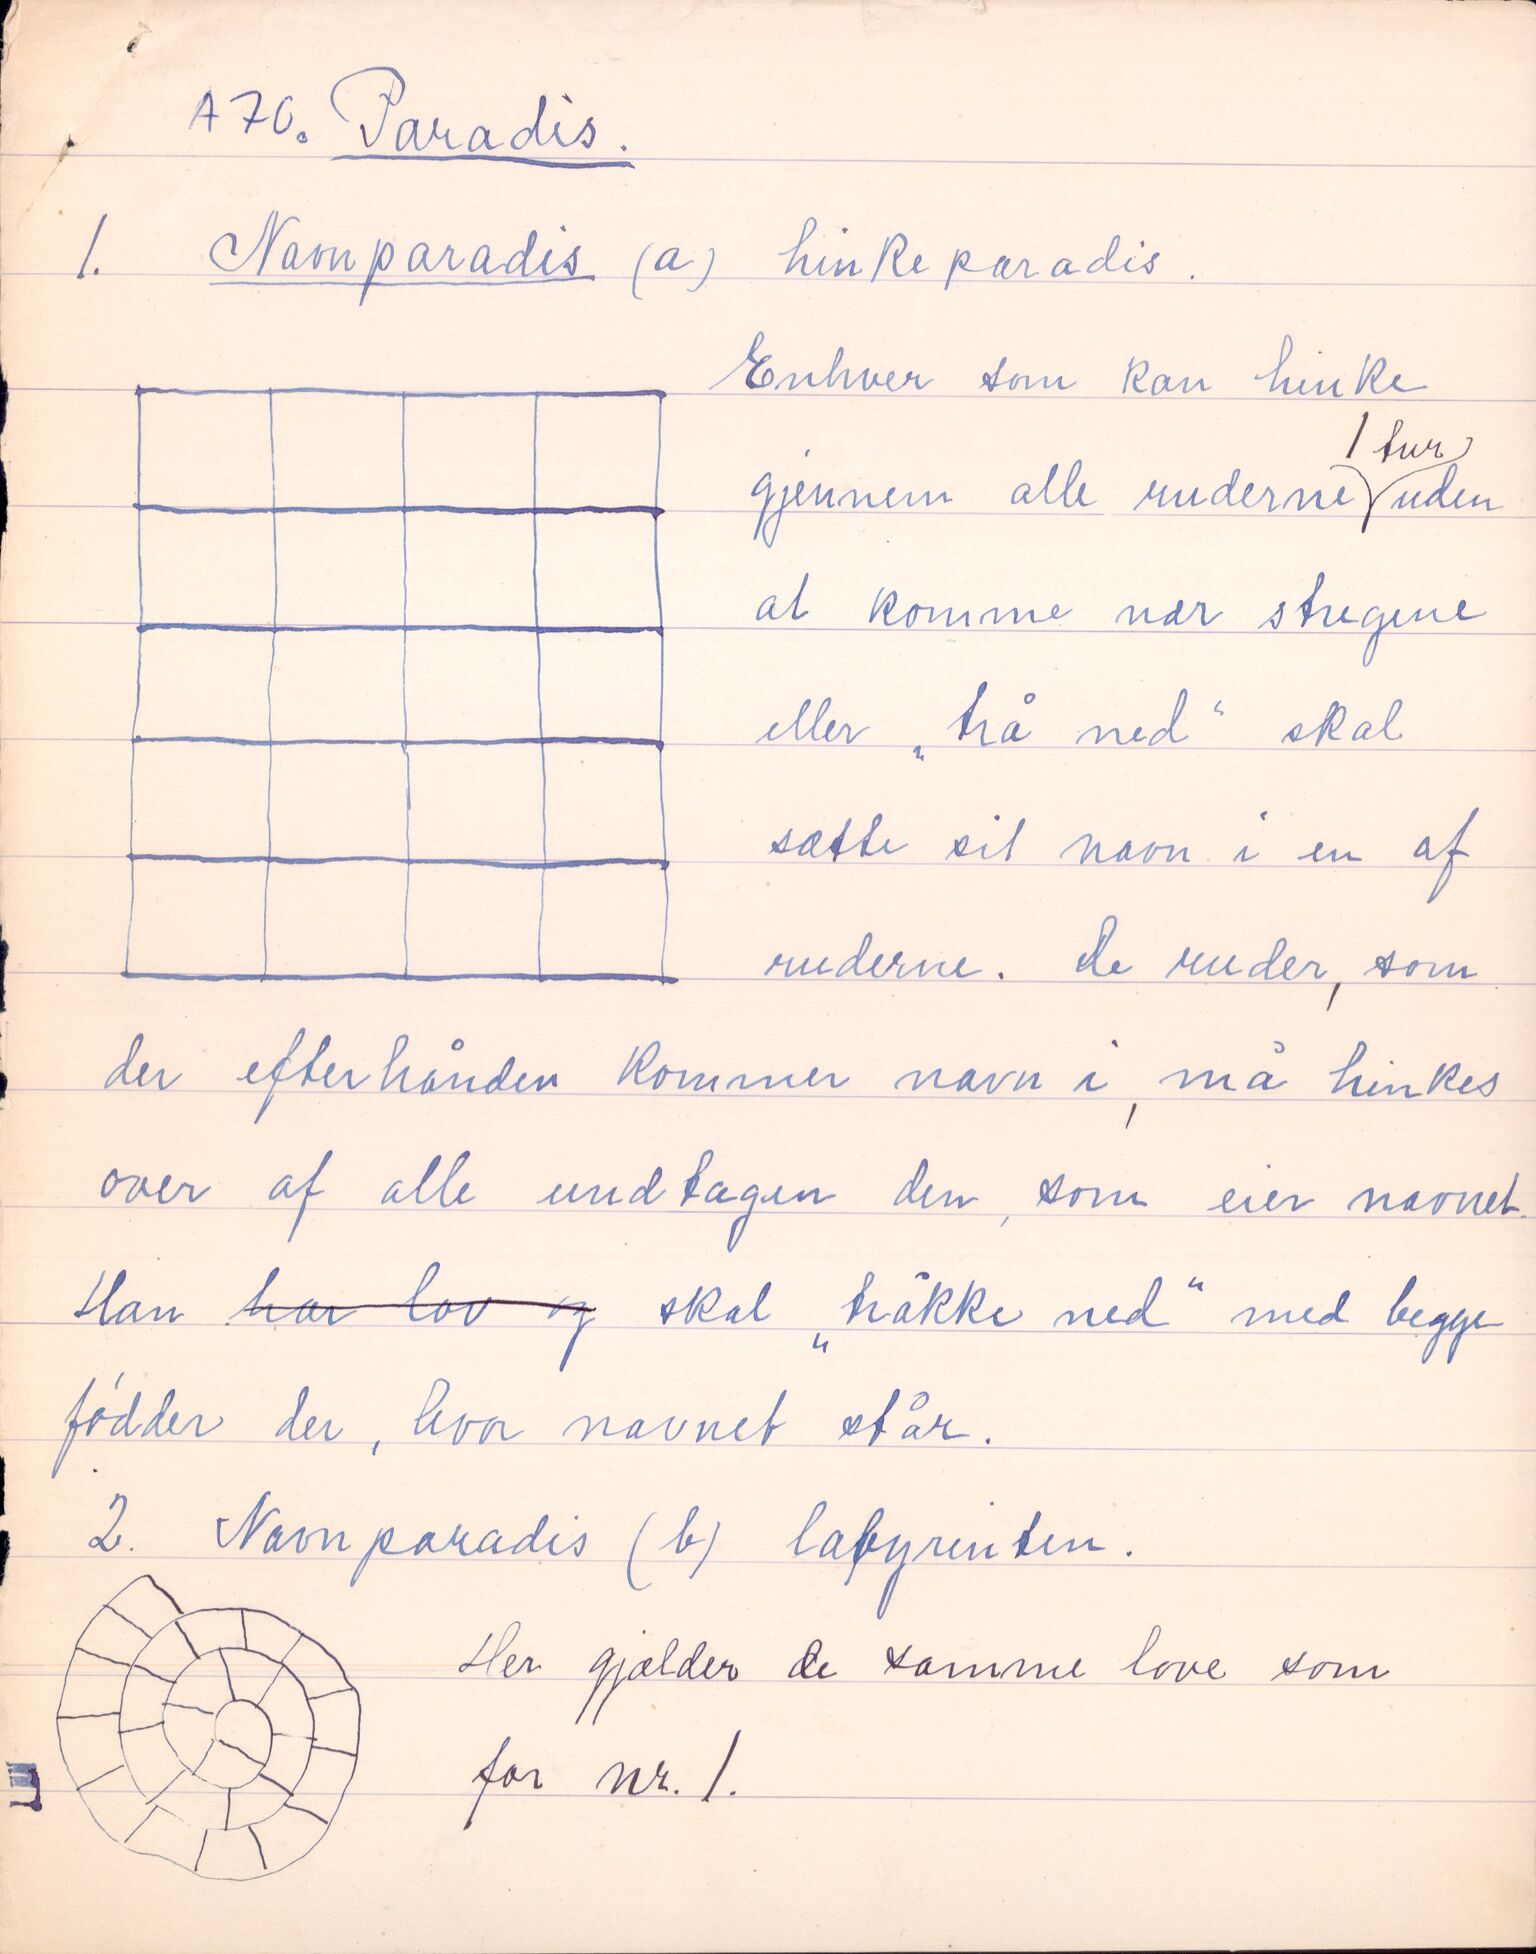 A 70. Paradis.
1. Navnparadis (a) hinkeparadis.
Enhver som kan hinke
1 tur
gjennem alle ruderne uden
at komme nær stregene
eller „trå ned“ skal
sætte sit navn i en af
ruderne. De ruder, som
der efterhånden kommer navn i, må hinkes
over af alle undtagen den, som eier navnet.
Han har lov og skal „tråkke ned“ med begge
fødder der, hvor navnet står.
2. Navnparadis (b) labyrinten.
Her gjælder de samme love som
for nr. 1.